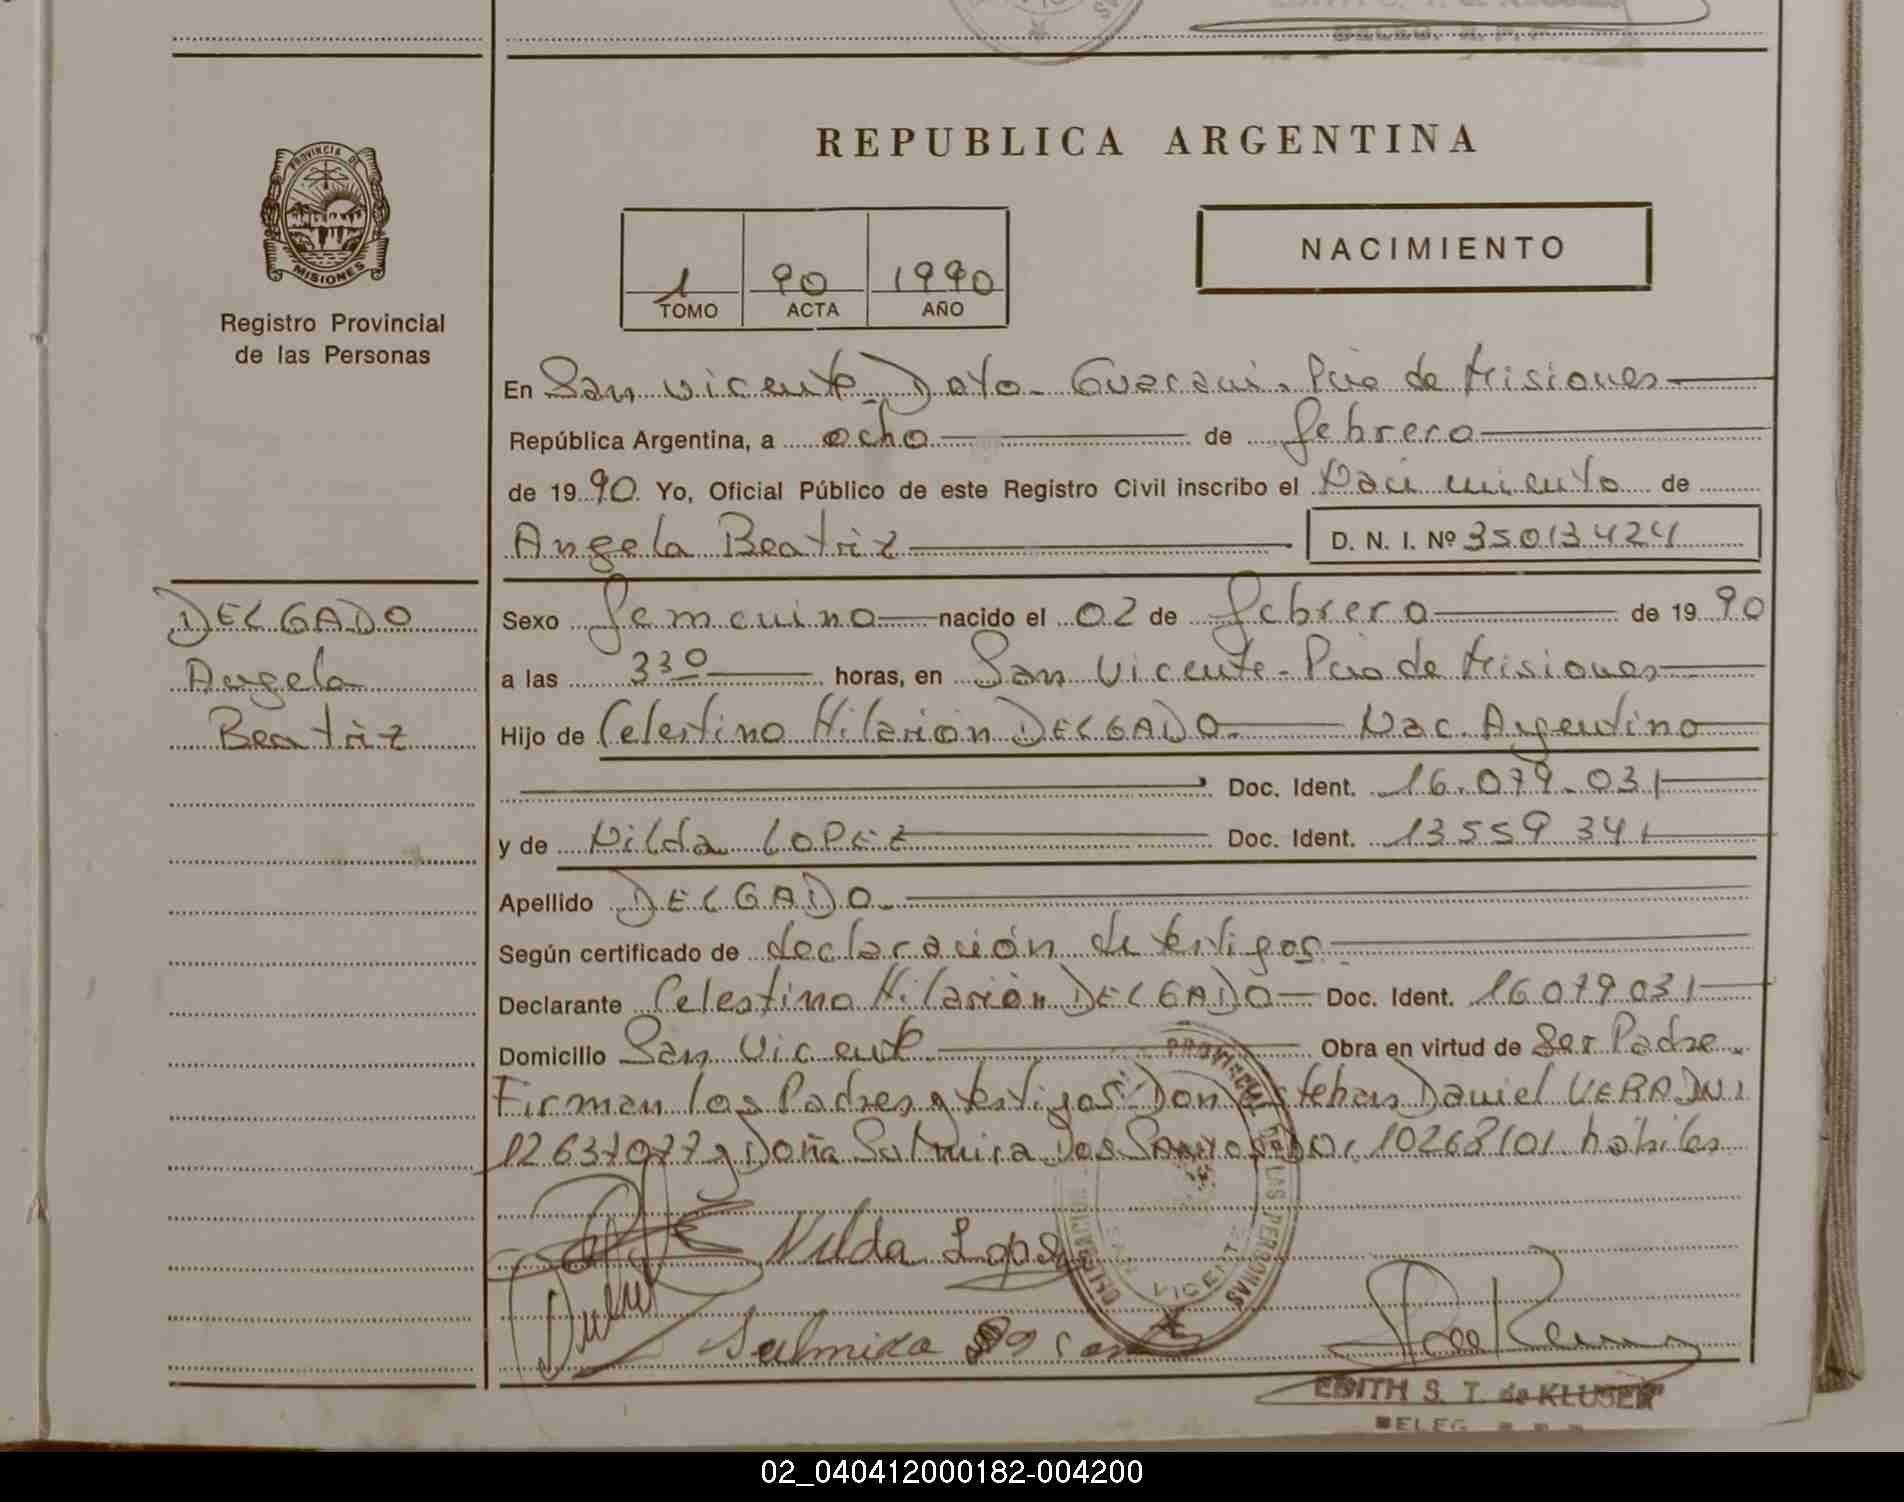 REPUBLICA ARGENTINA
PROVINCIA DE
MISIONES
Registro Provincial
de las Personas
1 TOMO 90 ACTA 1990 AÑO
NACIMIENTO
En San Vicente Dpto. Guarani. Pcia de Misiones
República Argentina, a ocho de febrero
de 1990. Yo, Oficial Público de este Registro Civil inscribo el Nacimiento de
Angela Beatriz D. N. I. Nº 35013424
DELGADO
Angela
Beatriz
Sexo femenino nacido el 02 de febrero de 1990
a las 3 30 horas, en San Vicente - Pcia de Misiones
Hijo de Celestino Hilarión DELGADO. Nac. Argentino
Doc. Ident. 16.079.031
y de Nilda LOPEZ Doc. Ident. 13559341
Apellido DELGADO.
Según certificado de declaración de testigos.
Declarante Celestino Hilarión DELGADO Doc. Ident. 16079031
Domicilio San Vicente Obra en virtud de Ser Padre.
Firman los Padres y testigos: Don Esteban Daniel VERA DNI
12637077 y Doña Salmira Dos Santos DNI. 10268101 habiles
Nilda Lopez
Salmira Dos San
DELEGACION PROVINCIAL DE LAS PERSONAS
SAN VICENTE
EDITH S. T. de KLUSER
DELEG.
02_040412000182-004200